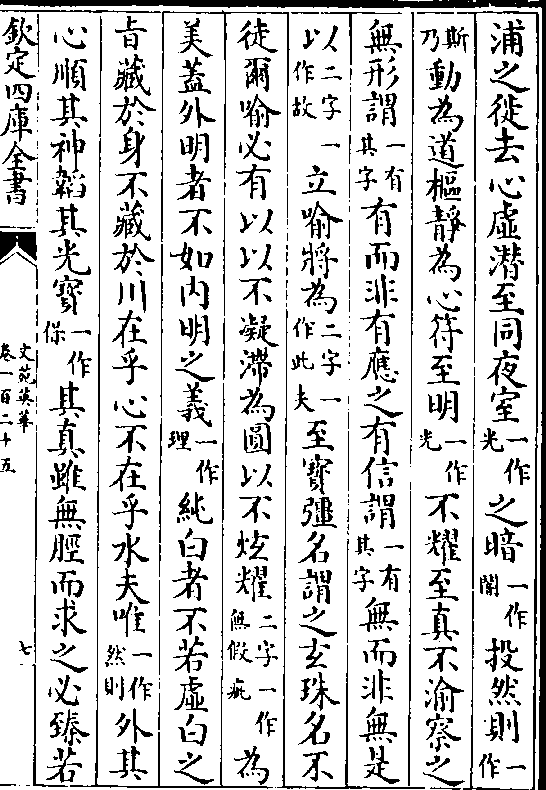 浦之徙去心虛潜至同夜室一作光之暗一作闇投然則一作
斯乃動為道樞靜為心符至明一作光不耀至真不渝察之
無形謂一有其字有而非有應之有信謂一有其字無而非無是
以二字一作故立喻將為二字一作此夫至寶彊名謂之玄珠名不
徒爾喻必有以以不凝滯為圓以不炫耀二字一作無假疵為
美蓋外明者不如内明之義一作理純白者不若虛白之
旨藏於身不藏於川在乎心不在乎水夫唯一作然則外其
心順其神韜其光寶一作保其真雖無脛而求之必臻若
欽定四庫全書
文苑英華
卷一百二十五
七